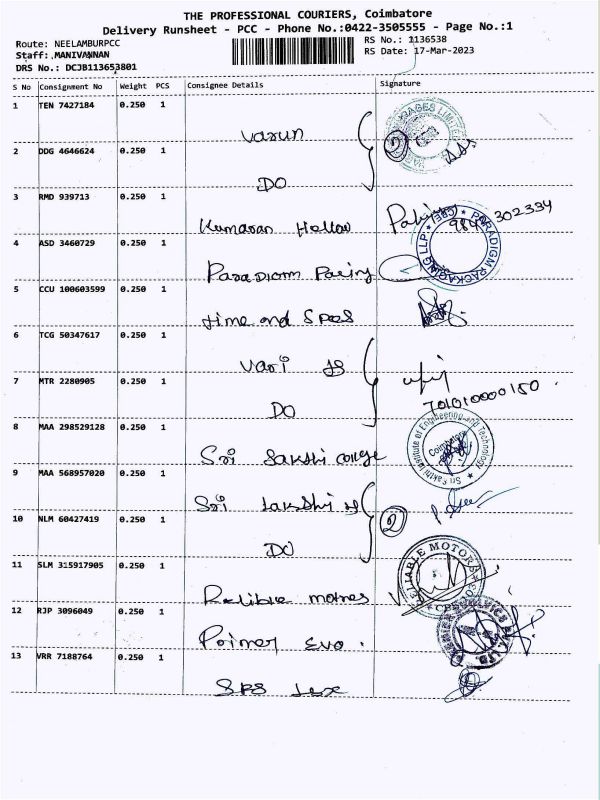 THE PROFESSIONAL COURIERS, Coimbatore
Delivery Runsheet - PCC - Phone No.:0422-3505555 - Page No.:1
Route: NEELAMBURPCC
RS No.: 1136538
Staff: MANIVANNAN
RS Date: 17-Mar-2023
DRS No.: DCJB113653801
S No Consignment No Weight PCS Consignee Details Signature
1 TEN 7427184 0.250 1
Varun
2
2 DDG 4646624 0.250 1
DO
3 RMD 939713 0.250 1
Kumaran Hollow
302334
4 ASD 3460729 0.250 1
PARADIGM PACKAGING LLP
5 CCU 100603599 0.250 1
time and
6 TCG 50347617 0.250 1
7 MTR 2280905 0.250 1
DO
701010000150
8 MAA 298529128 0.250 1
Sri Sakthi college
Sri Sakthi Institute of Engineering and Technology
Coimbatore
9 MAA 568957020 0.250 1
Sri
10 NLM 60427419 0.250 1
2
DO
11 SLM 315917905 0.250 1
RELIABLE MOTORS
12 RJP 3096049 0.250 1
Primer Evo.
13 VRR 7188764 0.250 1
SPS